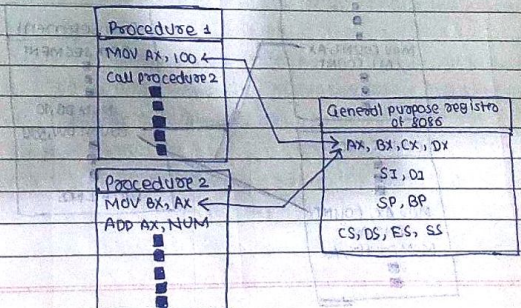 Procedure 1
MOV AX, 100
Call procedure 2
Procedure 2
MOV BX, AX
ADD AX, NUM
General purpose registro
of 8086
AX, BX, CX, DX
SI, DI
SP, BP
CS, DS, ES, SS